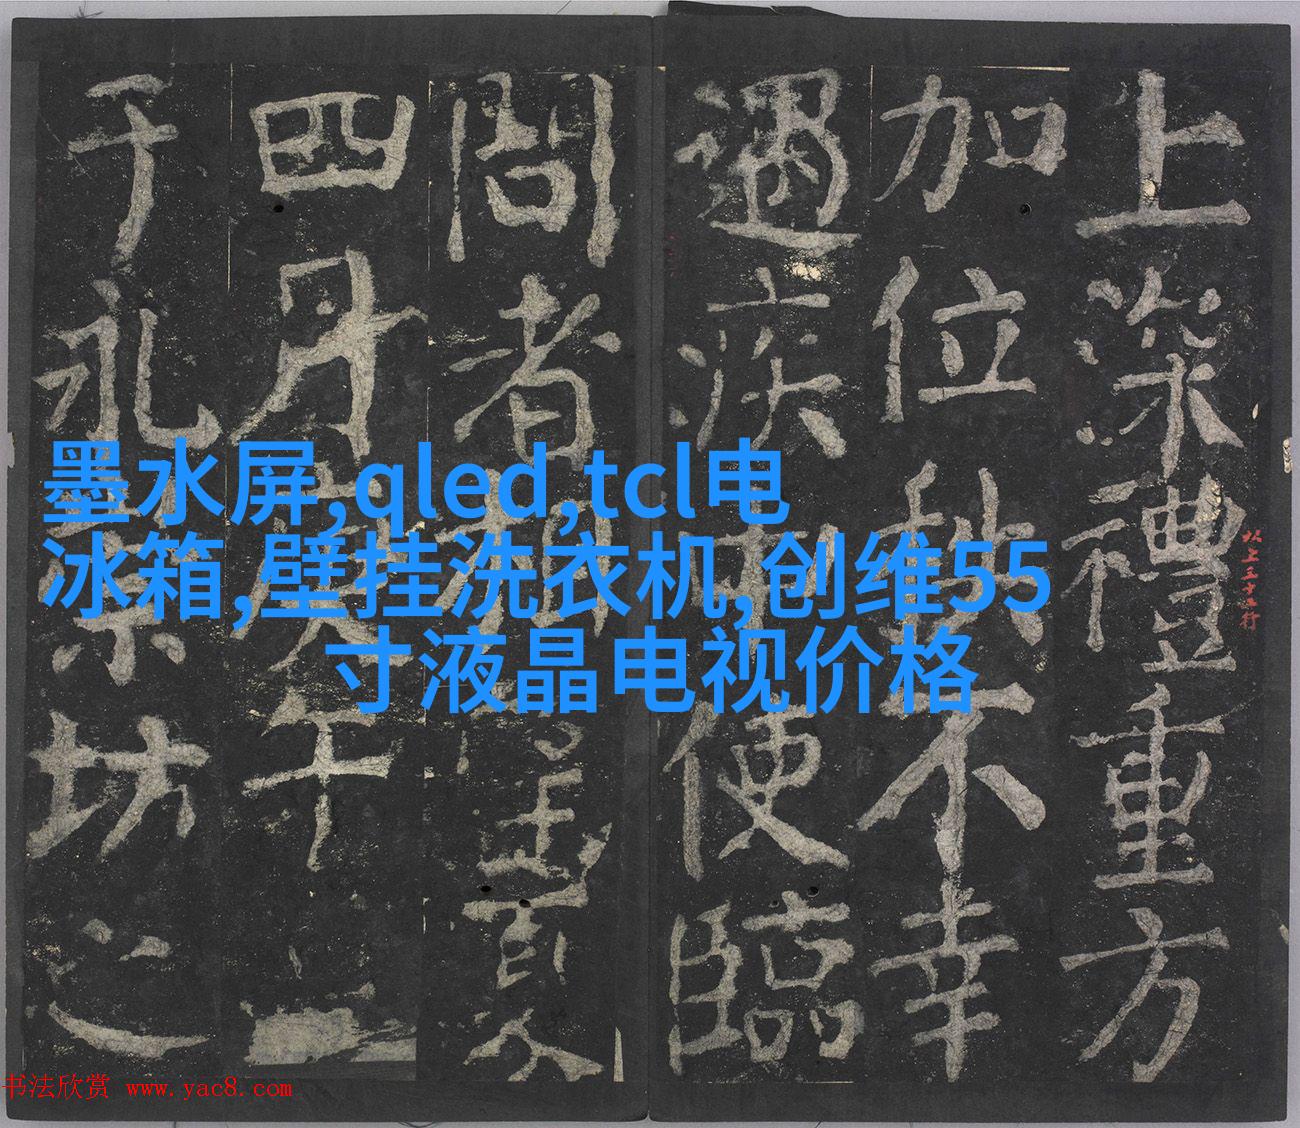 上深禮重方
加位秩不幸
遇疾便臨
問者相望
四月庚午
于永崇坊之
以上五十五行
墨水屏,qled,tcl电
冰箱,壁挂洗衣机,创维55
寸液晶电视价格
书法欣赏 www.yac8.com